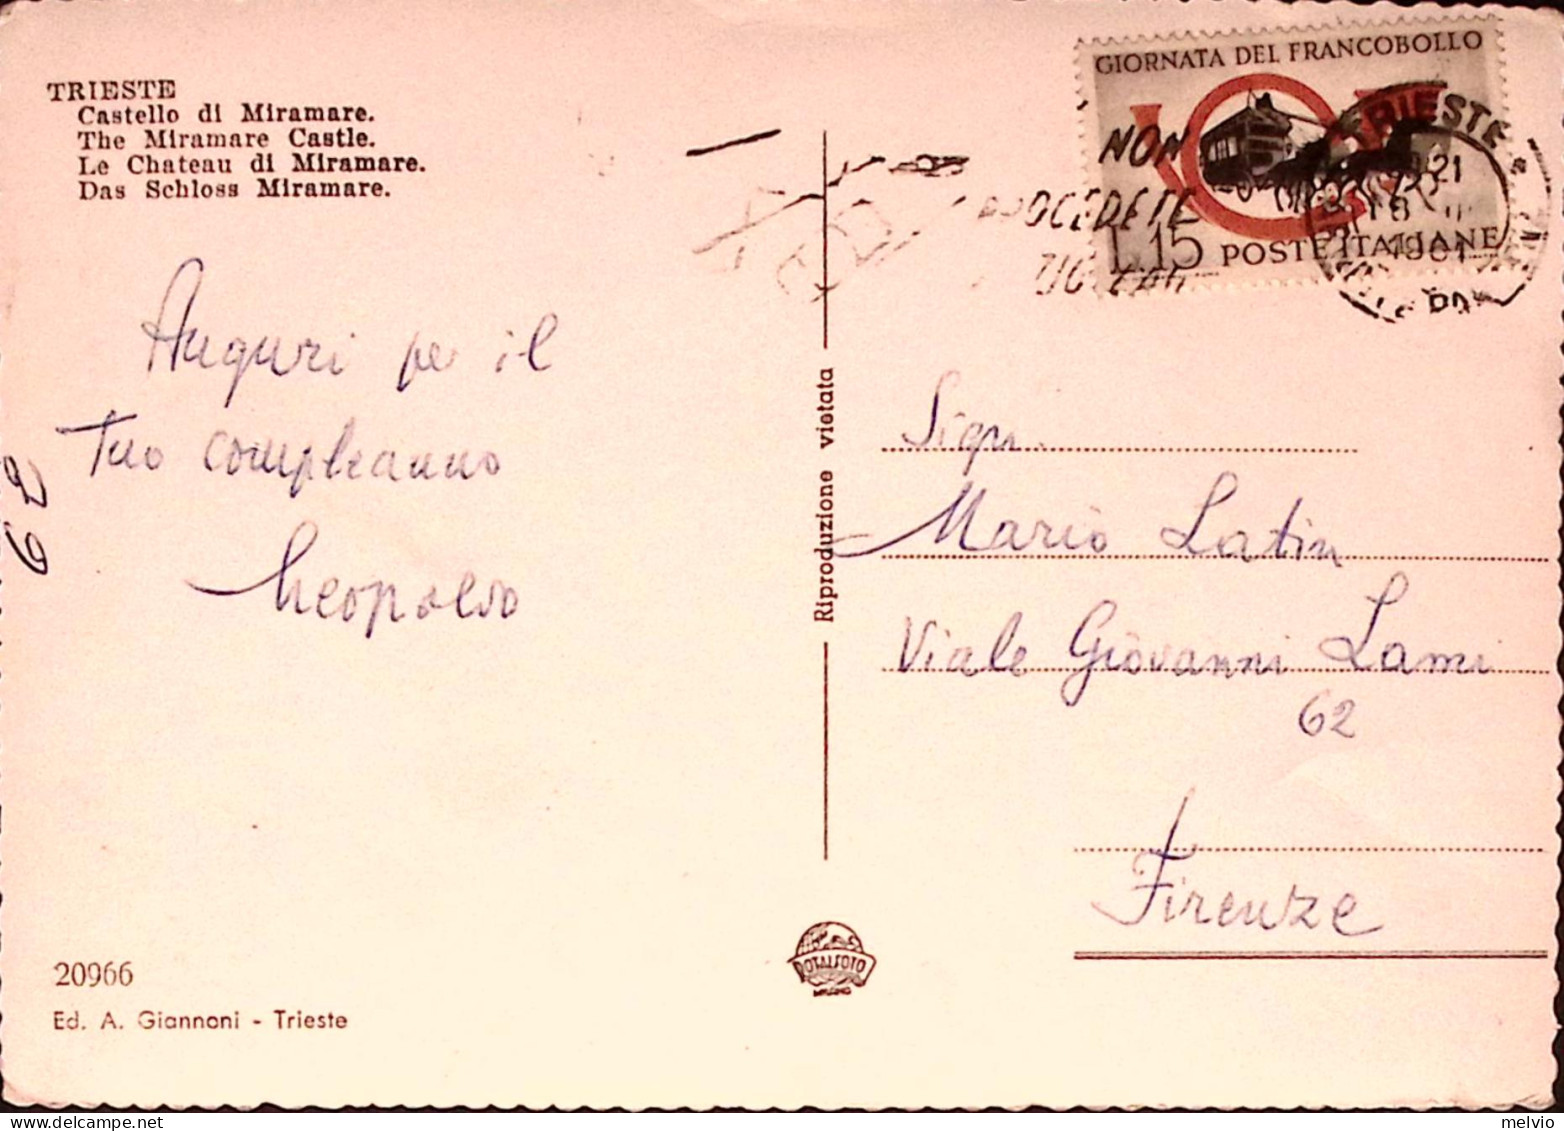 TRIESTE
Castello di Miramare.
The Miramare Castle.
Le Chateau di Miramare.
Das Schloss Miramare.
Auguri per il
tuo compleanno
Leopoldo
62
20966
Ed. A. Giannoni - Trieste
Riproduzione vietata
ROTALFOTO
MILANO
GIORNATA DEL FRANCOBOLLO
L.15 POSTE ITALIANE
NON
TRIESTE
21
Sign.
Mario Latin
Viale Giovanni Lami
62
Firenze
melvio